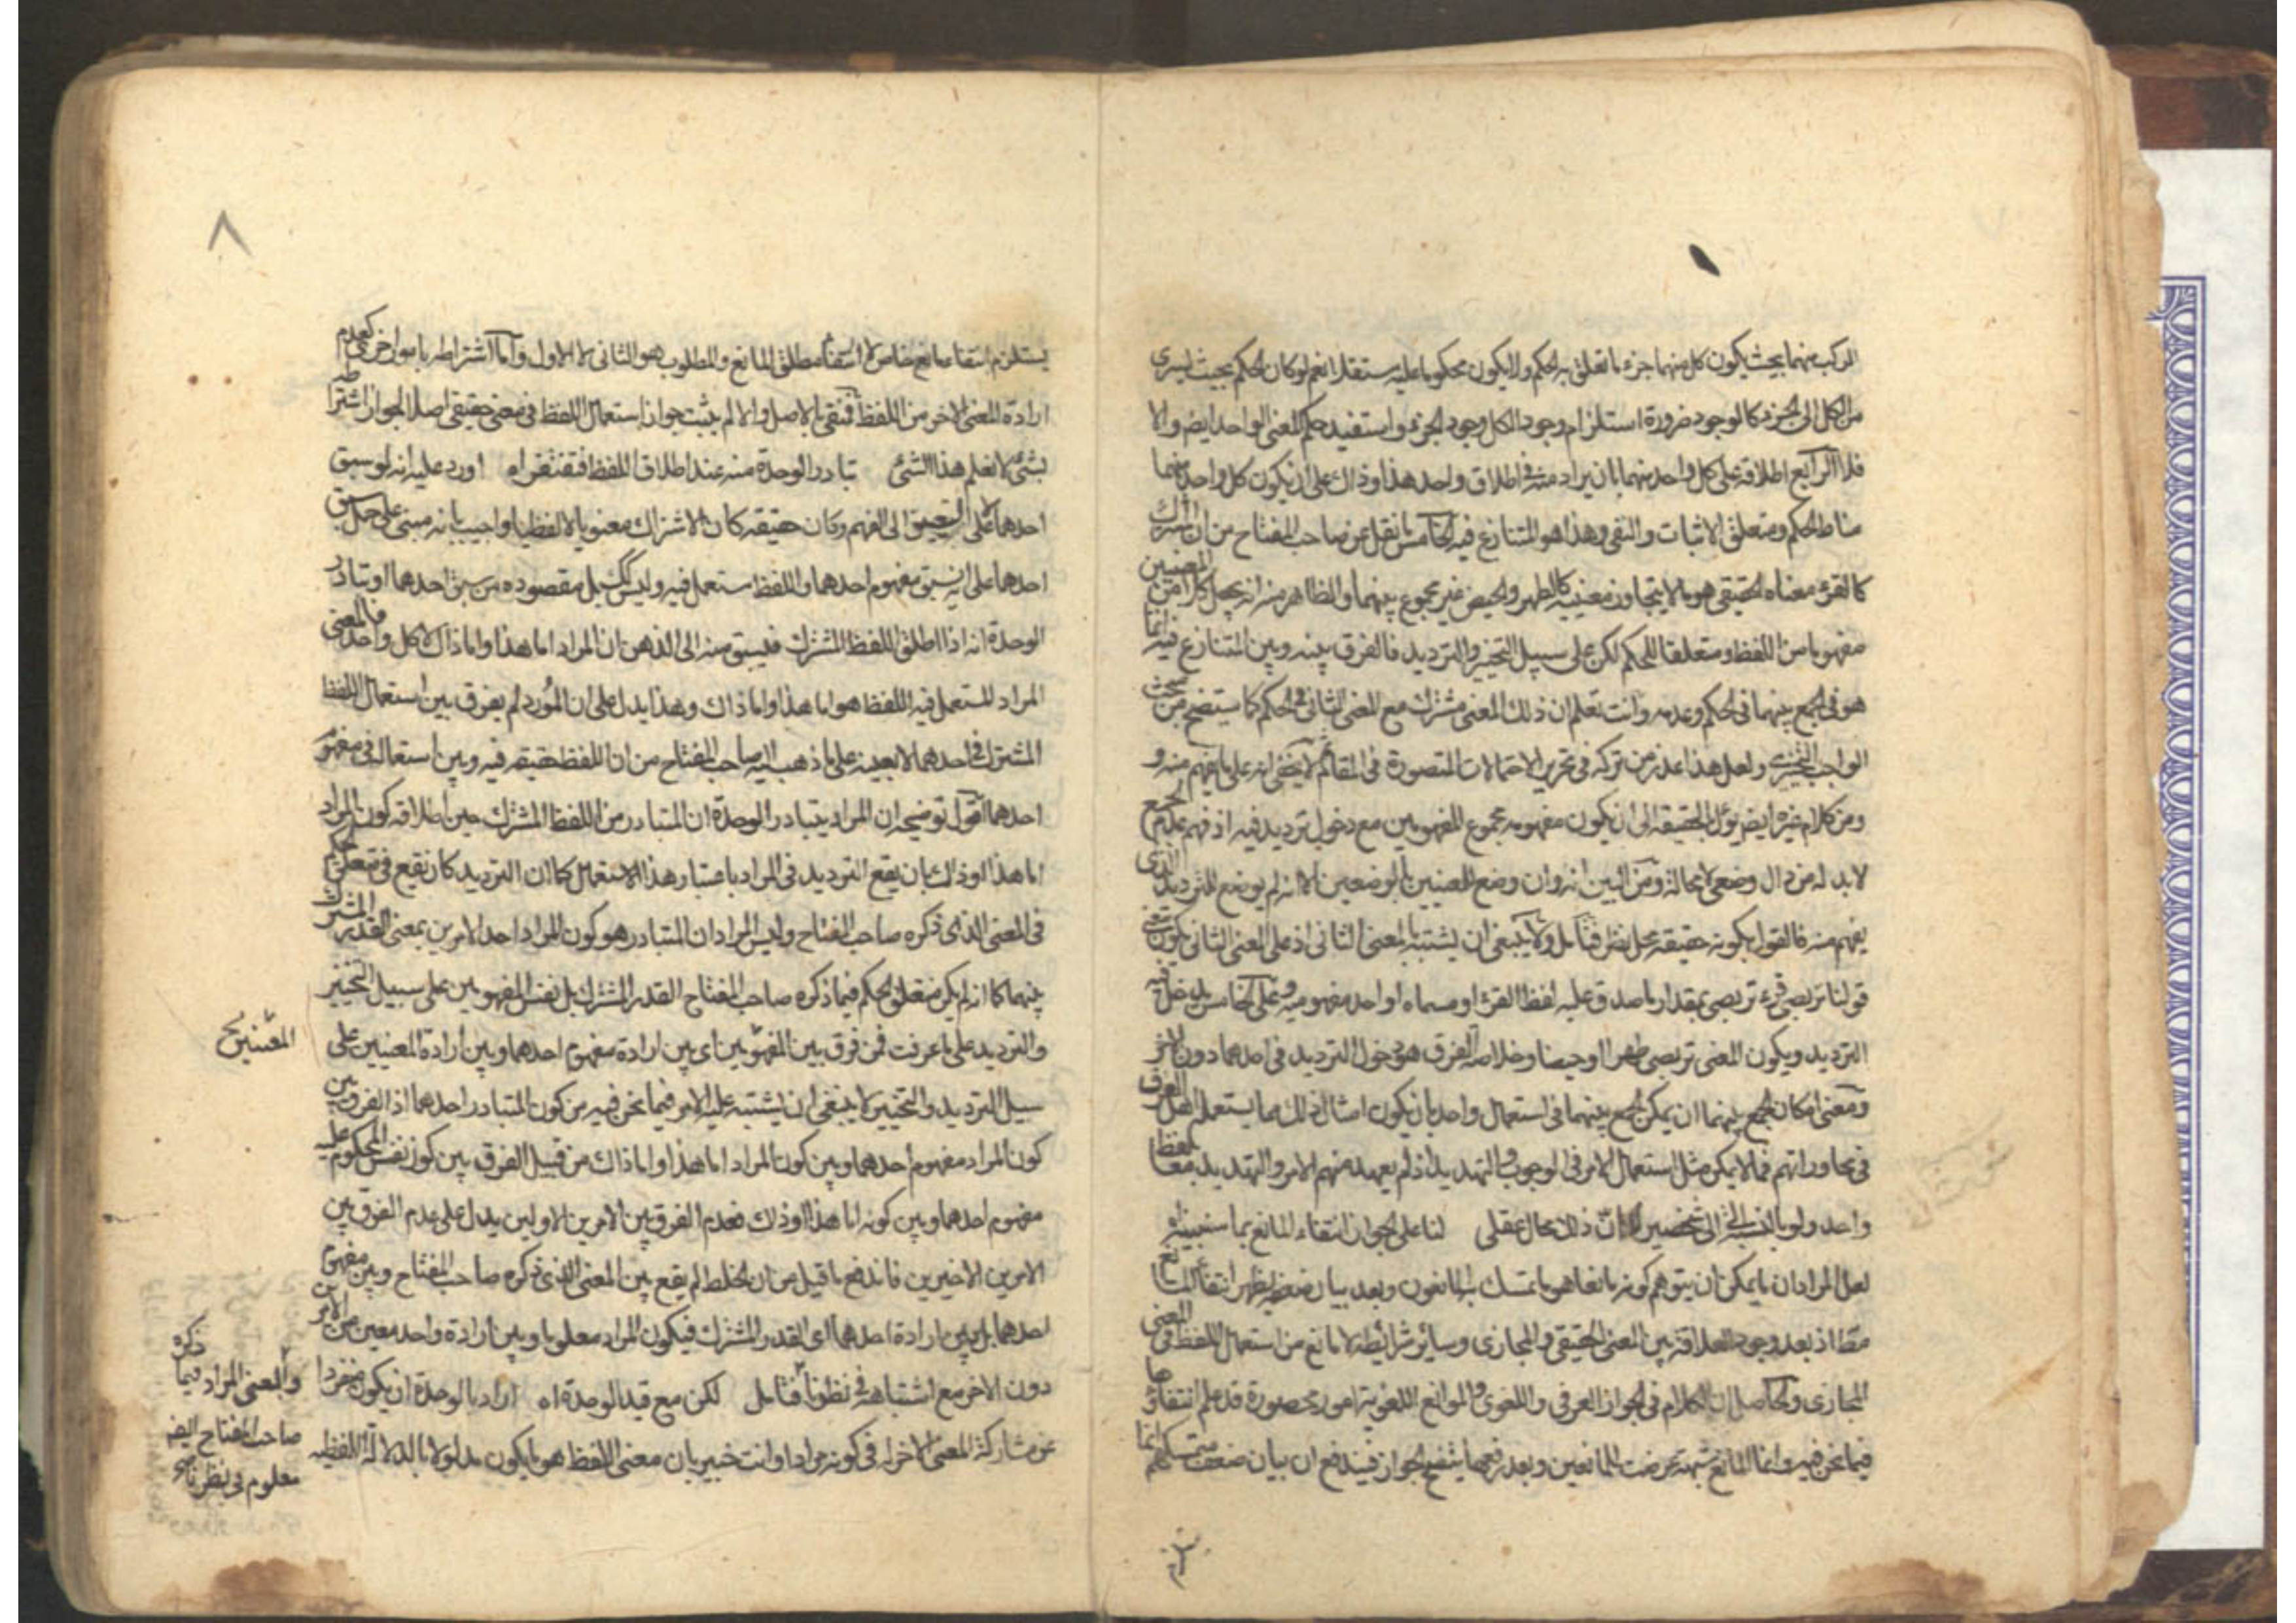 المركب منهما بحيث يكون كل منهما جزء ما تعلق به الحكم ولا يكون محكوما عليه مستقلا نعم لو كان الحكم بحيث يسرى
من الكل الى الجزء كالوجود ضرورة استلزام وجود الكل وجود الجزء واستفيد حكم المعنى الواحد ايضا والا
فلا الرابع اطلاقه على كل واحد منهما بان يراد منه فى اطلاق واحد هذا وذاك على ان يكون كل واحد منهما
مناط الحكم ومتعلق الاثبات والنفى وهذا هو المتنازع فيه الخامس ما نقل عن صاحب المفتاح من ان المشترك
كالقرء معناه الحقيقى هو ما لا يتجاوز معنييه كالطهر والحيض غير مجموع بينهما والظاهر منه انه يجعل كلا من المعنيين
مفهوما من اللفظ ومتعلقا للحكم لكن على سبيل التخيير والترديد فالفرق بينه وبين المتنازع فيه انما
هو فى الجمع بينهما فى الحكم وعدمه وانت تعلم ان ذلك المعنى مشترك مع المعنى الثانى فى الحكم كما ستضح من بحث
الواجب التخييرى ولعل هذا عذر من تركه فى تحرير الاحتمالات المتصورة فى المقام ثم لا يخفى انه على ما يفهم منه و
ومن كلام غيره ايضا يؤل الحقيقة الى ان يكون مفهومه مجموع المفهومين مع دخول ترديد فيه اذ فهم عدم الجمع
لا بد له من دال وضعى لا محالة ومن البين انه وان وضع للمعنيين بالوضعين الا انه لم يوضع للترديد الذى
يفهم منه فالقول بكونه حقيقة محل نظر فتامل ولا ينبغى ان يشتبه بالمعنى الثانى اذ على المعنى الثانى يكون معنى
قولنا تربصى قرء تربصى بمقدار ما صدق عليه لفظ القرء او مسماه او احد مفهوميه وعلى الخامس يدخل فيه
الترديد ويكون المعنى تربصى طهرا او حيضا وخلاصة الفرق هو دخول الترديد فى احدهما دون الاخر
ومعنى امكان الجمع بينهما ان يمكن الجمع بينهما فى استعمال واحد بان يكون امثال ذلك مما يستعمله اهل العرف
فى محاوراتهم فما لا يمكن مثل استعمال الامر فى الوجوب والتهديد اذ لم يعهد منهم الامر والتهديد معا بلفظ
واحد ولو بالنسبة الى شخصين لا ان ذلك محال عقلى لنا على الجواز انتفاء المانع بما سنبينه اه
لعل المراد ان ما يمكن ان يتوهم كونه مانعا هو ما تمسك به المانعون وبعد بيان ضعفه يظهر انتفاء المانع
مط اذ بعد وجود العلاقة بين المعنى الحقيقى والمجازى وسائر شرائطه لا مانع من استعمال اللفظ فى المعنى
المجازى والحاصل ان الكلام فى الجواز العرفى واللغوى والموانع اللغوية امور محصورة قد علم انتفاؤها
فيما نحن فيه وانما المانع شبهة عرضت للمانعين وبعد رفعها يتضح الجواز فيندفع ان بيان ضعف متمسكهم انما
٨
يستلزم انتفاء مانع خاص لا انتفاء مطلق المانع والمطلوب هو الثانى لا الاول واما اشتراطه بامور اخر كعدم
ارادة المعنى الاخر من اللفظ فينتفى بالاصل والا لم يثبت جواز استعمال اللفظ فى معنى حقيقى اصلا لجواز اشتراطه
بشئ لا نعلم هذا الشئ تبادر الوحدة منه عند اطلاق اللفظ فيفتقر اه اورد عليه انه لو سبق
احدهما لا على التعيين الى الفهم وكان حقيقة كان الاشتراك معنويا لا لفظيا واجيب بانه مبنى على حمل سبق
احدهما على انه سبق مفهوم احدهما واللفظ مستعمل فيه وليس كك بل مقصوده من سبق احدهما او تبادر
الوحدة انه اذا اطلق اللفظ المشترك فيسبق منه الى الذهن ان المراد اما هذا واما ذاك لا كل واحد فالمعنى
المراد المستعمل فيه اللفظ هو اما هذا واما ذاك وهذا يدل على ان المورد لم يفرق بين استعمال اللفظ
المشترك فى احدهما لا بعينه على ما ذهب اليه صاحب المفتاح من ان اللفظ حقيقة فيه وبين استعماله فى مفهوم
احدهما اقول توضيحه ان المراد بتبادر الوحدة ان المتبادر من اللفظ المشترك حين اطلاقه كون المراد
اما هذا او ذاك بان يقع الترديد فى المراد باعتبار هذا الاستعمال كما ان الترديد كان يقع فى متعلق الحكم
فى المعنى الذى ذكره صاحب المفتاح وليس المراد ان المتبادر هو كون المراد احد الامرين بمعنى القدر المشترك
بينهما كما انه لم يكن متعلق الحكم فيما ذكره صاحب المفتاح القدر المشترك بل نفس المفهومين على سبيل التخيير
والترديد على ما عرفت فمن فرق بين المفهومين اى بين ارادة مفهوم احدهما وبين ارادة المعنيين على
سبيل الترديد والتخيير لا ينبغى ان يشتبه عليه الامر فيما نحن فيه من كون المتبادر احدهما اذ الفرق بين
كون المراد مفهوم احدهما وبين كون المراد اما هذا واما ذاك من قبيل الفرق بين كون نفس المحكوم عليه
مفهوم احدهما وبين كونه اما هذا او ذاك فعدم الفرق بين الامرين الاولين يدل على عدم الفرق بين
الامرين الاخيرين فاندفع ما قيل من ان الخلط لم يقع بين المعنى الذى ذكره صاحب المفتاح وبين مفهوم
احدهما بل بين ارادة احدهما اى القدر المشترك فيكون المراد معلوما وبين ارادة واحد معين من الامرين
دون الاخر مع اشتباهه فى نظرنا فتامل لكن مع قيد الوحدة اه اراد بالوحدة ان يكون منفردا
عن مشاركة المعنى الاخر له فى كونه مرادا وانت خبير بان معنى اللفظ هو ما يكون مدلولا بالدلالة اللفظية
المعنيين
والمعنى المراد فيما ذكره
صاحب المفتاح ايضا
معلوم فى نظرنا